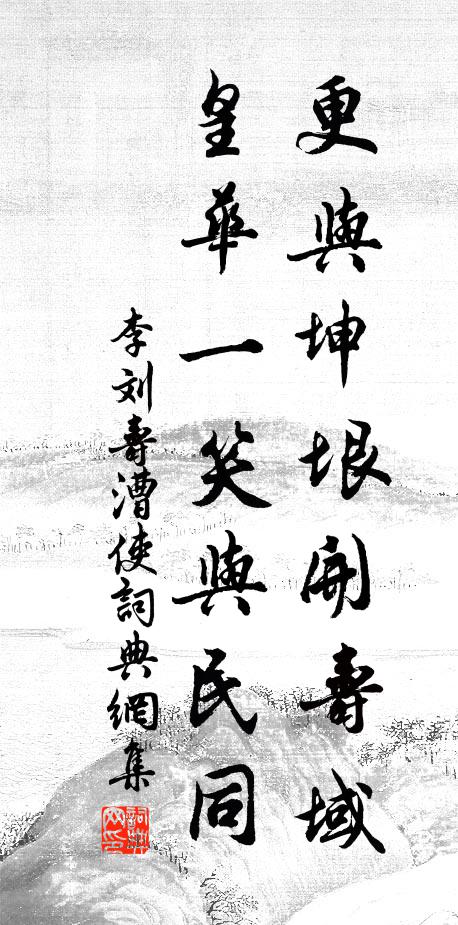 更與坤垠開壽域
皇華一笑與民同
李刘壽漕使詞典網集